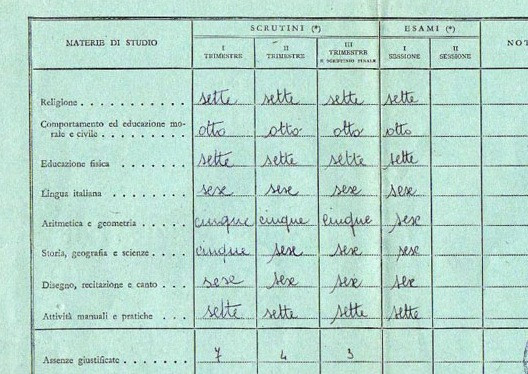 MATERIE DI STUDIO
SCRUTINI (*)
ESAMI (*)
I TRIMESTRE
II TRIMESTRE
III TRIMESTRE E SCRUTINIO FINALE
I SESSIONE
II SESSIONE
NOT
Religione . . . . . . . . . . . sette sette sette sette
Comportamento ed educazione mo-
rale e civile . . . . . . . . . . otto otto otto otto
Educazione fisica . . . . . . . sette sette sette sette
Lingua italiana . . . . . . . sese sese sese sese
Aritmetica e geometria . . . . . cinque cinque cinque sese
Storia, geografia e scienze . . . . cinque sese sese sese
Disegno, recitazione e canto . . . sese sese sese sese
Attività manuali e pratiche . . . sette sette sette sette
Assenze giustificate . . . . . . . 7 4 3